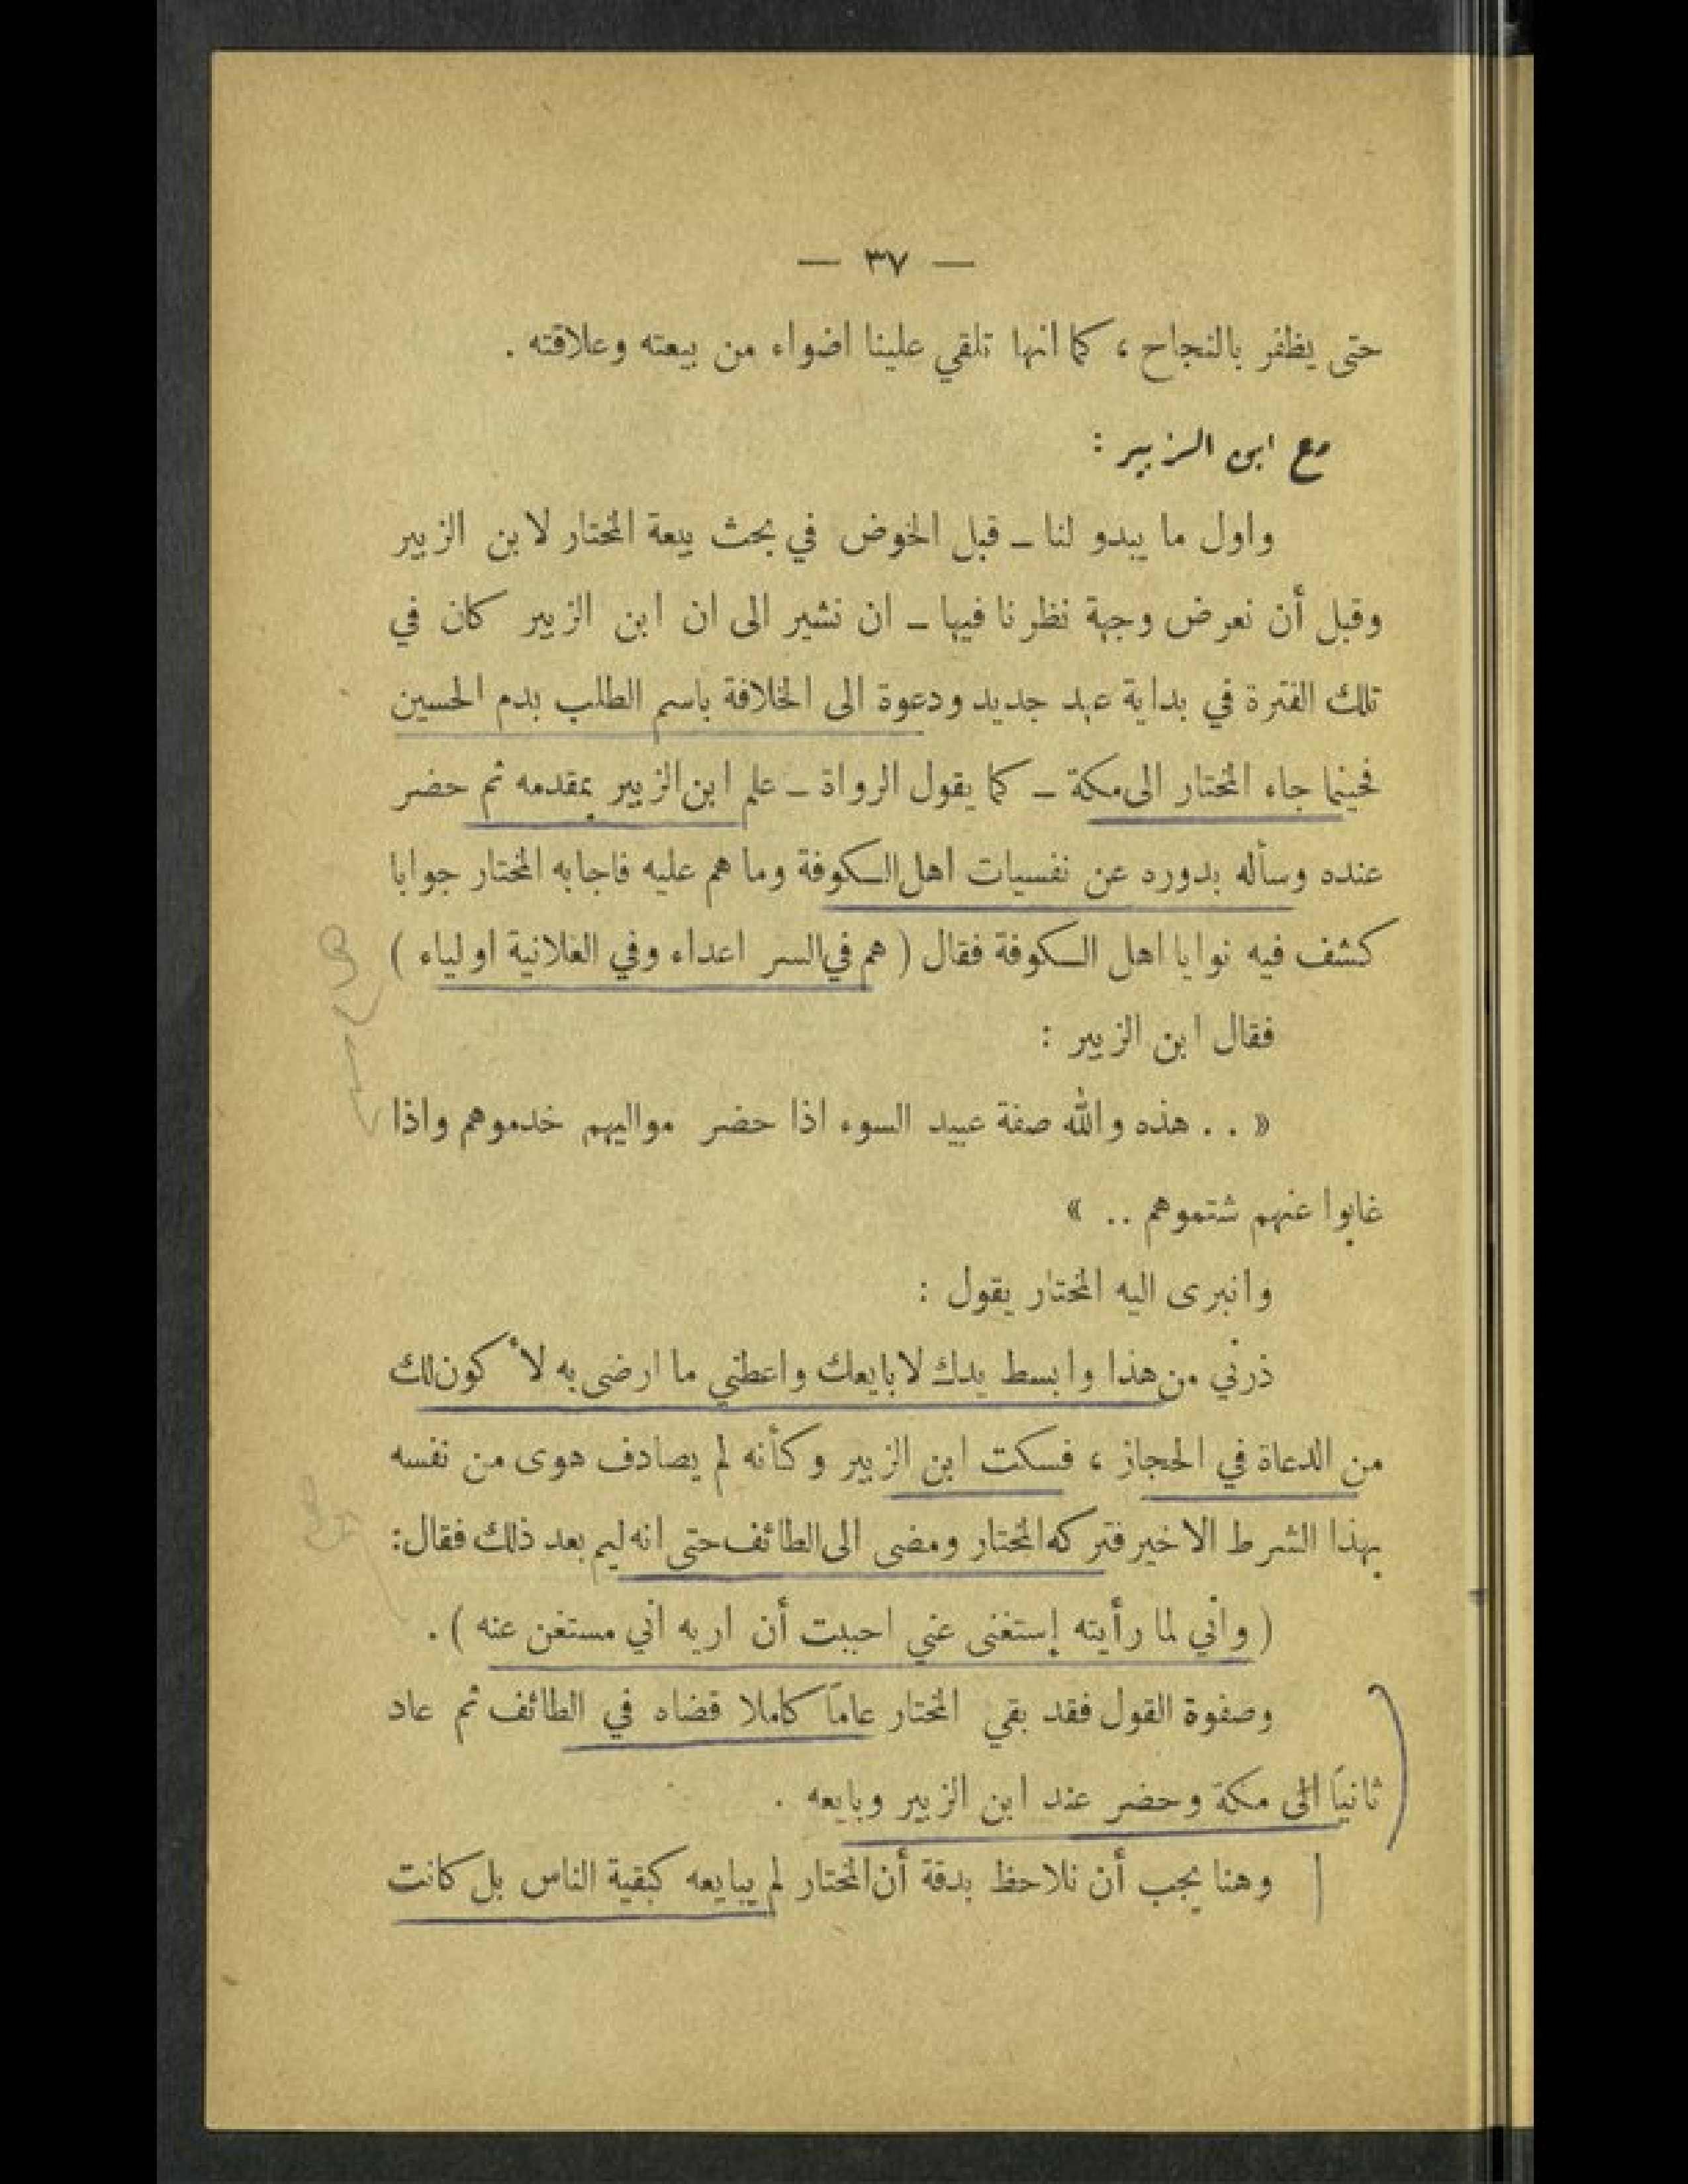 — ٣٧ —
حتى يظفر بالنجاح ، كما انها تلقي علينا اضواء من بيعته وعلاقته .
مع ابن الزبير :
واول ما يبدو لنا ــ قبل الخوض في بحث بيعة المختار لابن الزبير
وقبل أن نعرض وجهة نظرنا فيها ــ ان نشير الى ان ابن الزبير كان في
تلك الفترة في بداية عهد جديد ودعوة الى الخلافة باسم الطلب بدم الحسين
فحينما جاء المختار الى مكة ــ كما يقول الرواة ــ علم ابن الزبير بمقدمه ثم حضر
عنده وسأله بدوره عن نفسيات اهل الكوفة وما هم عليه فاجابه المختار جوابا
كشف فيه نوايا اهل الكوفة فقال ( هم في السر اعداء وفي العلانية اولياء )
فقال ابن الزبير :
« . . هذه والله صفة عبيد السوء اذا حضر مواليهم خدموهم واذا
غابوا عنهم شتموهم .. »
وانبرى اليه المختار يقول :
ذرني من هذا وابسط يدك لابايعك واعطني ما ارضى به لأكون لك
من الدعاة في الحجاز ، فسكت ابن الزبير وكأنه لم يصادف هوى من نفسه
بهذا الشرط الاخير فتركه المختار ومضى الى الطائف حتى انه ليم بعد ذلك فقال:
( واني لما رأيته إستغنى عني احببت أن اريه اني مستغن عنه ) .
وصفوة القول فقد بقي المختار عاماً كاملا قضاه في الطائف ثم عاد
ثانياً الى مكة وحضر عند ابن الزبير وبايعه .
وهنا يجب أن نلاحظ بدقة أن المختار لم يبايعه كبقية الناس بل كانت